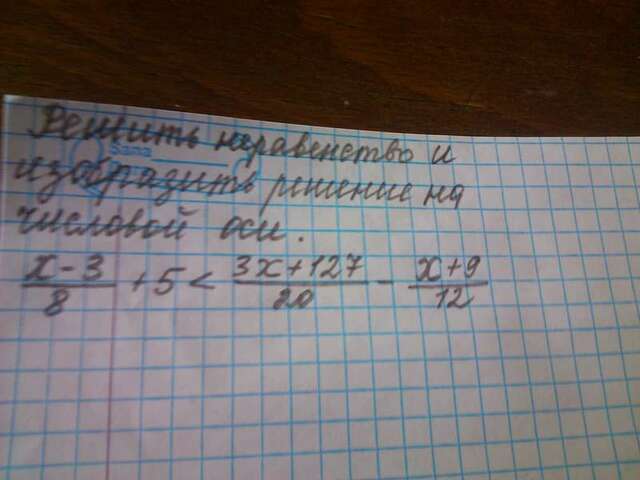 Решить неравенство и
изобразить решение на
числовой оси.
x-3/8 +5 < 3x+127/20 - x+9/12